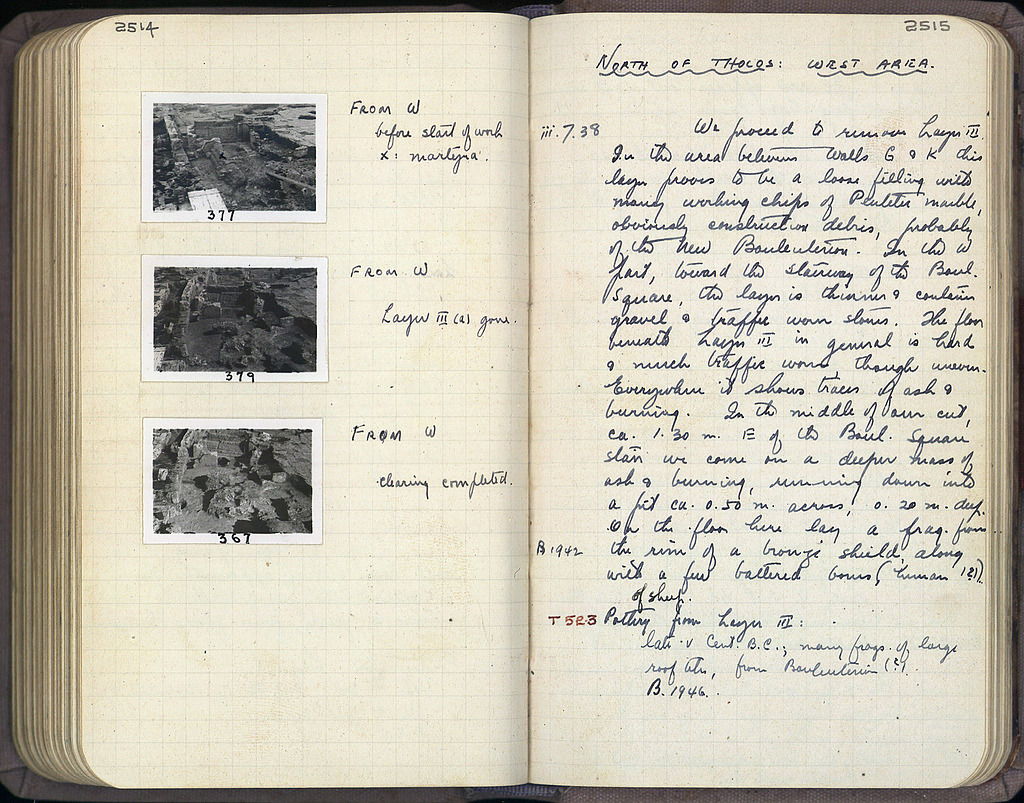 2514
From W
before start of work
x: martyra.
377
From W
Layer III (a) gone.
379
From W
clearing completed.
367
2515
North of Tholos: West Area.
iii.7.38
We proceed to remove Layer III.
In the area between Walls G & K this
layer proves to be a loose filling with
many working chips of Pentelic marble,
obviously construction debris, probably
of the New Bouleuterion. In the W
part, toward the stairway of the Boul.
Square, the layer is thinner & contains
gravel & traffic worn stones. The floor
beneath Layer III in general is hard
& much traffic worn, though uneven.
Everywhere it shows traces of ash &
burning. In the middle of our cut,
ca. 1.30 m. E of the Boul. Square
stair we come on a deeper mass of
ash & burning, running down into
a pit ca. 0.50 m. across, 0.20 m. deep.
On the floor here lay a frag. from
B 1942
the rim of a bronze shield, along
with a few battered bones (human (?)).
of sheep.
T 523
Pottery from Layer III:
late V Cent. B.C.; many frags. of large
roof tiles, from Bouleuterion (?).
B. 1946.